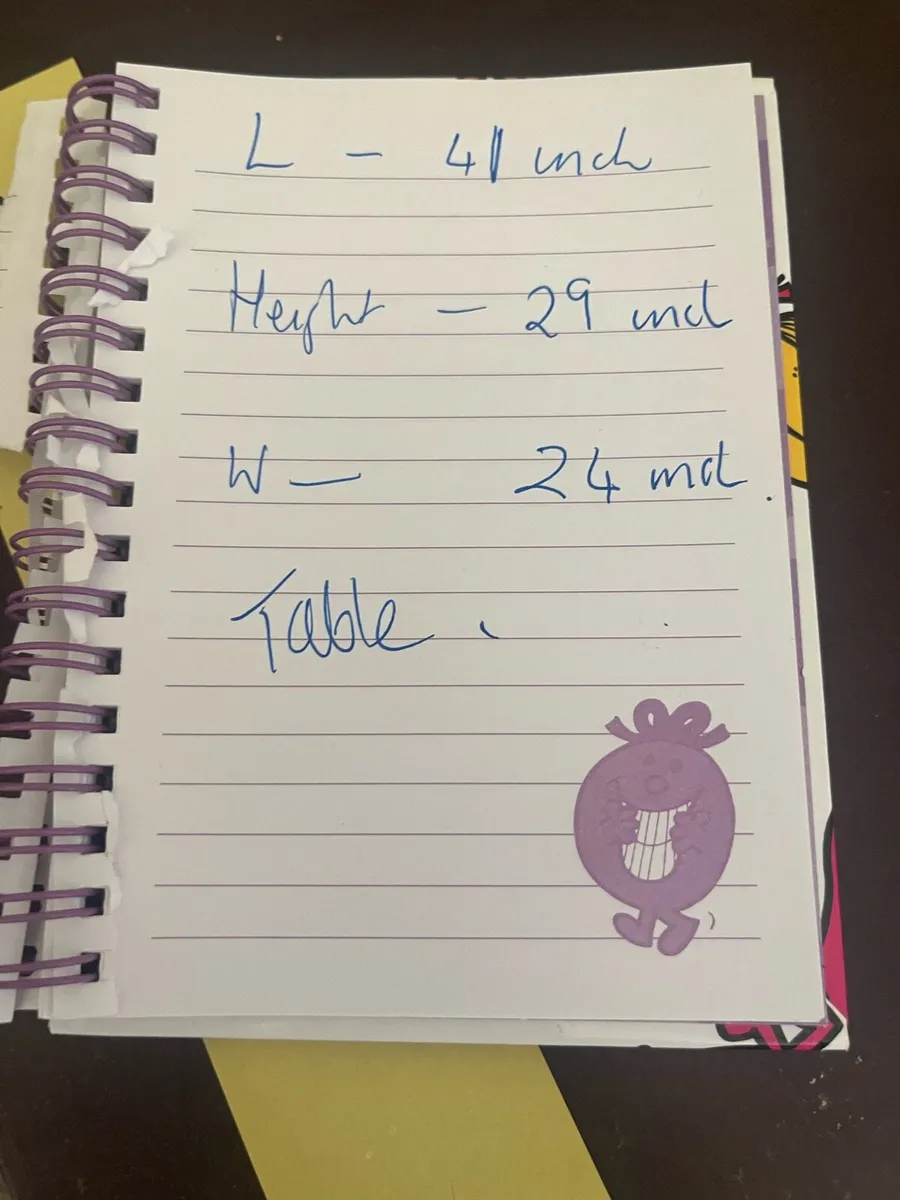 L - 41 inch
Height - 29 inch
W - 24 inch.
Table.